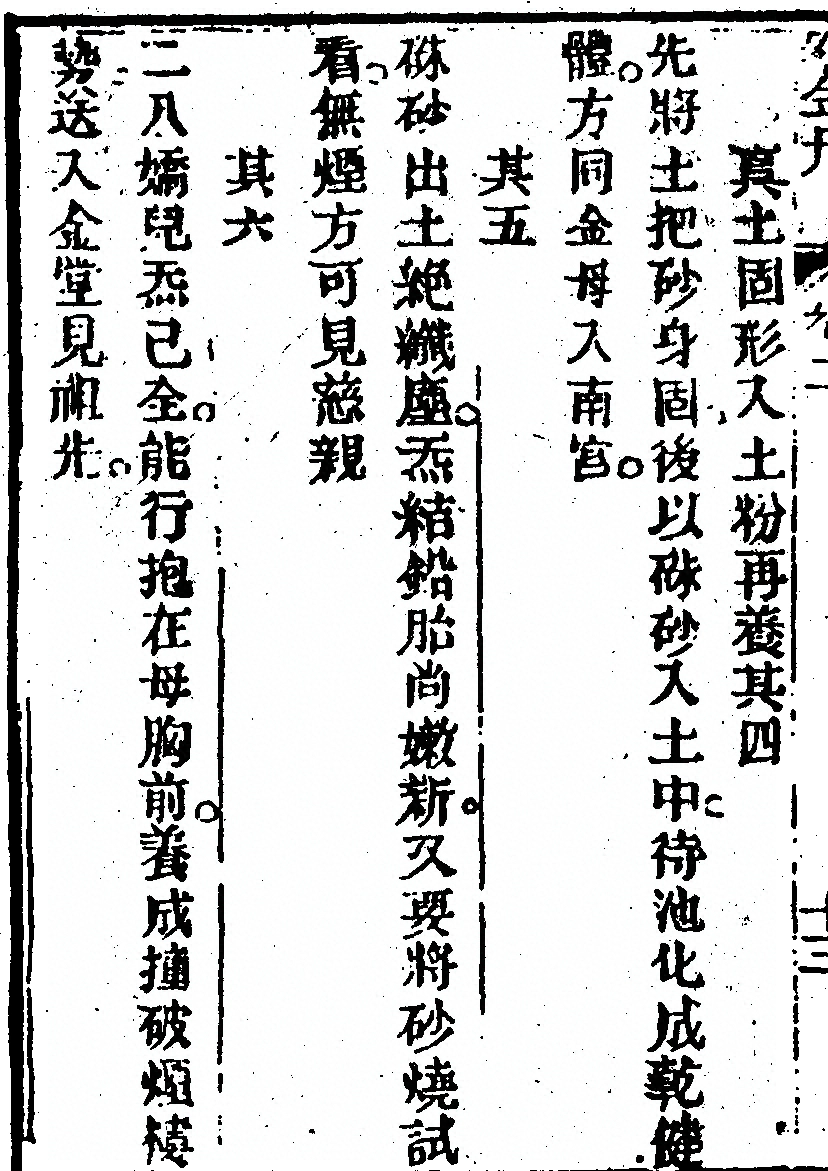 真土固形入土粉再養其四
先將土把砂身固後以硃砂入土中待池化成乾健
體方同金母入南宮
其五
硃砂出土絶纖塵炁結鉛胎尚嫩新又要將砂燒試
看無煙方可見慈親
其六
二八嬌兒炁己全能行抱在母胸前養成撞破煙樓
勢送入金堂見祖先